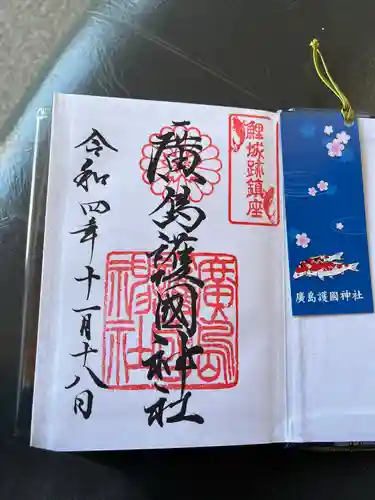 鯉城跡鎮座
廣島護國神社
令和四年十一月十八日
廣島護國神社